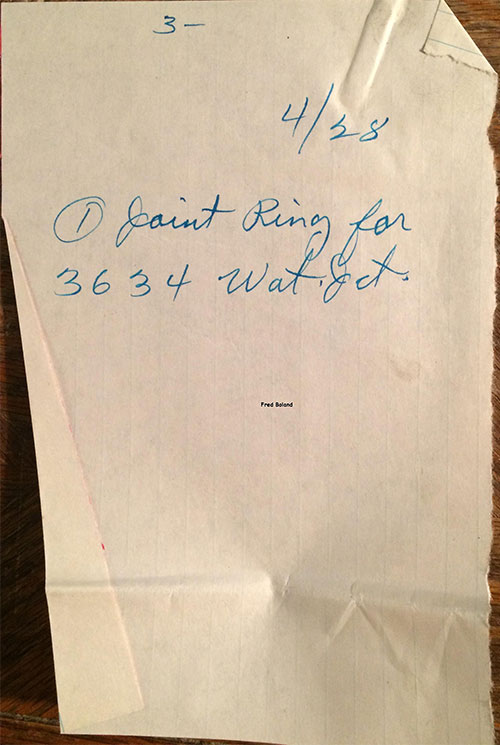 3-
4/28
① Joint Ring for
3634 Wat. Jct.
Fred Boland